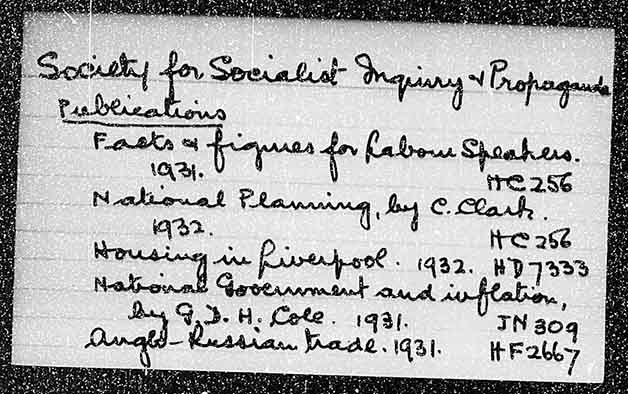 Society for Socialist Inquiry & Propaganda
Publications
Facts & figures for Labour Speakers.
1931. HC 256
National Planning, by C. Clark.
1932. HC 256
Housing in Liverpool. 1932. HD 7333
National Government and inflation,
by G. D. H. Cole. 1931. JN 309
Anglo-Russian trade. 1931. HF 2667